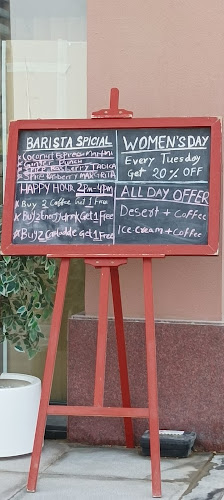 BARISTA SPICIAL
* Coconut Espresso Martini
* Ginger Punch
* Spice Red Berry
* Spice
HAPPY HOUR 2Pm-4Pm
* Buy 2 Coffee Get 1 Free
* Buy 2 Energy drink Get 1 Free
* Buy 2 Get 1 Free
WOMEN'S DAY
Every Tuesday
Get 20% OFF
ALL DAY OFFER
Desert + Coffee
Ice Cream + Coffee